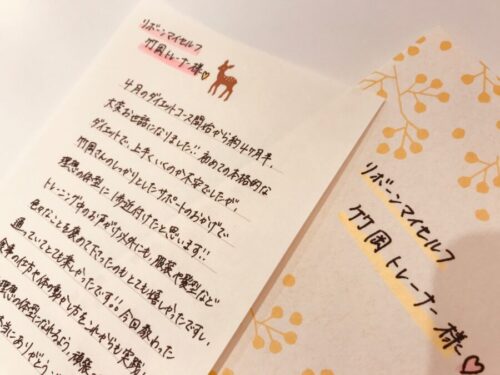 リボーンマイセルフ
竹岡トレーナー様
4月のダイエットコース開始から約4ヶ月半、
大変お世話になりました!! 初めての本格的な
ダイエットで、上手くいくのか不安でしたが、
竹岡さんのしっかりとしたサポートのおかげで
理想の体型に1歩近付けたと思います!!
トレーニング中のお声がけ以外にも、服装や髪型など
色々なことを褒めて下ったのもとても嬉しかったですし、
通っていてとても楽しかったです!! 今回教わった
食事の仕方や体の動かし方をこれからも実践
理想の体型になれるよう、頑張
本当にありがとう
リボーンマイセルフ
竹岡トレーナー様